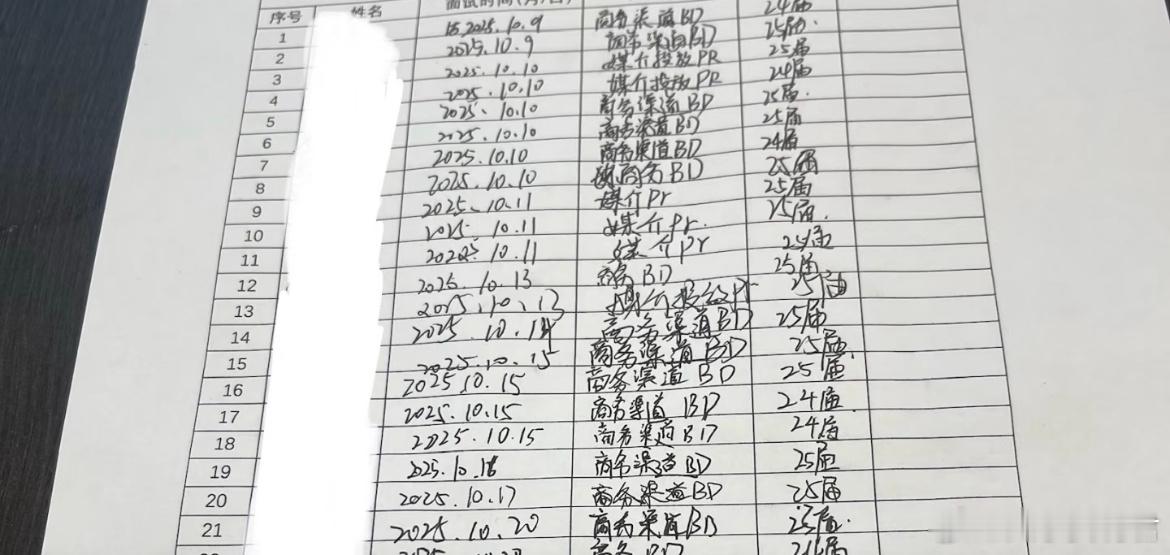 序号 姓名 面试时间
1 2025.10.9 商务渠道BD 24届
2 2025.10.9 商务渠道BD 25届
3 2025.10.10 媒介投放PR 25届
4 2025.10.10 媒介投放PR 24届
5 2025.10.10 商务渠道BD 25届
6 2025.10.10 商务渠道BD 25届
7 2025.10.10 商务渠道BD 24届
8 2025.10.10 商务BD 25届
9 2025.10.11 媒介Pr 25届
10 2025.10.11 媒介Pr. 25届.
11 2025.10.11 媒介Pr 25届
12 2025.10.13 商务BD 25届
13 2025.10.13 媒介投放Pr 25届
14 2025.10.14 商务渠道BD 25届
15 2025.10.15 商务渠道BD 25届.
16 2025.10.15 商务渠道BD 25届
17 2025.10.15 商务渠道BD 24届.
18 2025.10.15 商务渠道BD 24届
19 2025.10.16 商务渠道BD 25届
20 2025.10.17 商务渠道BD 25届
21 2025.10.20 商务渠道BD 25届.
商务BD